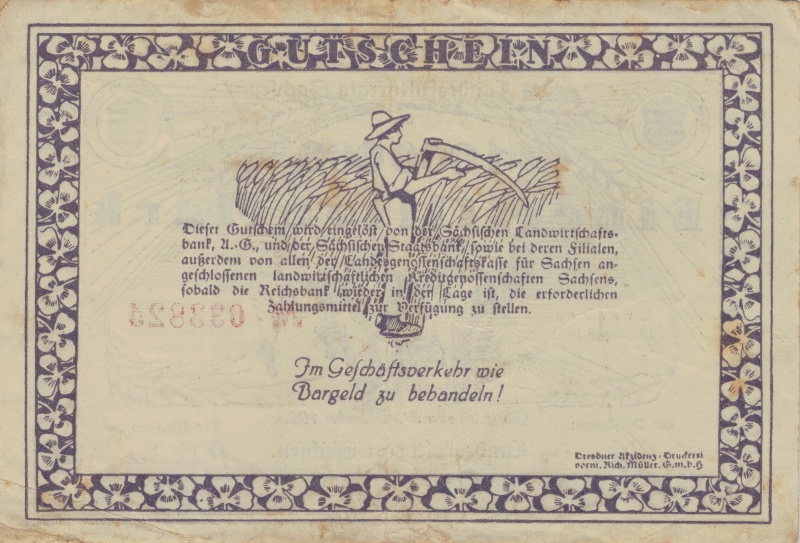 GUTSCHEIN
Dieser Gutschein wird eingelöst von der Sächsischen Landwirtschafts-
bank, A.-G., und der Sächsischen Staatsbank, sowie bei deren Filialen,
außerdem von allen der Landesgenossenschaftskasse für Sachsen an-
geschlossenen landwirtschaftlichen Kreditgenossenschaften Sachsens,
sobald die Reichsbank wieder in der Lage ist, die erforderlichen
Zahlungsmittel zur Verfügung zu stellen.
№ 033824
Im Geschäftsverkehr wie
Bargeld zu behandeln!
Dresdner Akzidenz-Druckerei
vorm. Rich. Müller, G.m.b.H